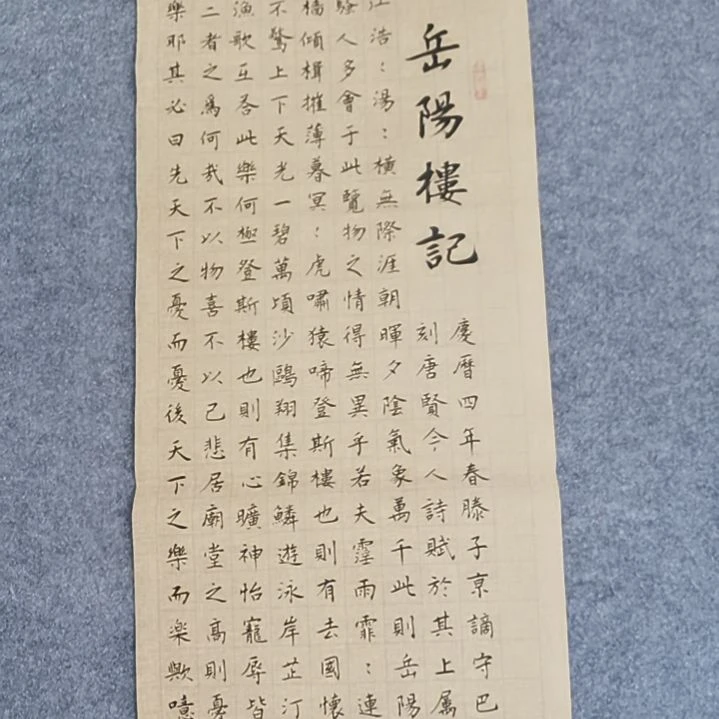 岳陽樓記
慶曆四年春滕子亰謫守巴
刻唐賢今人詩賦於其上属
江浩:湯:橫無際涯朝暉夕陰氣象萬千此則岳陽
騷人多會于此覽物之情得無異乎若夫霪雨霏:連
檣傾楫摧薄暮冥:虎嘯猿啼登斯樓也則有去國懷
不驚上下天光一碧萬頃沙鷗翔集錦鱗遊泳岸芷汀
漁歌互荅此樂何極登斯樓也則有心曠神怡寵辱皆
二者之爲何哉不以物喜不以己悲居廟堂之高則憂
樂耶其必曰先天下之憂而憂後天下之樂而楽歟噫